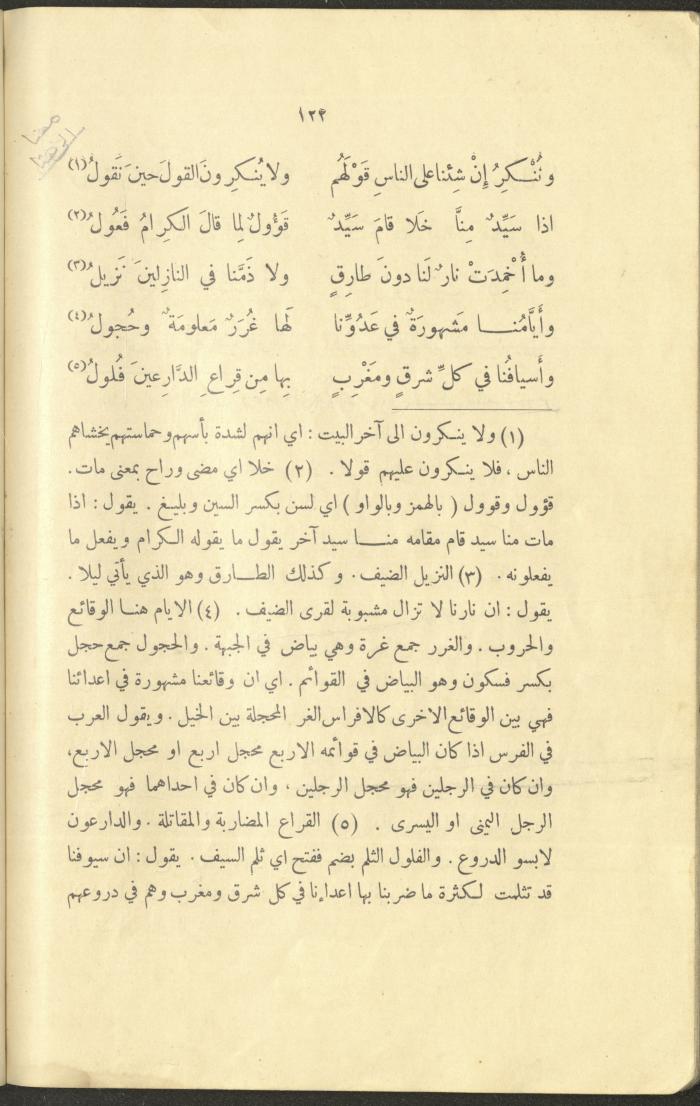 ١٢٣
ونُنْكِرُ إنْ شِئنا على الناسِ قَوْلَهُم ولا يُنكِرونَ القولَ حينَ نَقولُ (١)
اذا سَيِّدٌ مِنَّا خَلا قامَ سَيِّدٌ قَؤولٌ لِما قالَ الكِرامُ فَعُولُ (٢)
وما أُخْمِدَتْ نارٌ لَنا دونَ طارِقٍ ولا ذَمَّنا في النازِلينَ نَزيلُ (٣)
وأيَّامُنا مَشهورَةٌ في عَدُوِّنا لَها غُرَرٌ مَعلومَةٌ وحُجولُ (٤)
وأسيافُنا في كلِّ شرقٍ ومَغْرِبٍ بِها مِن قِراعِ الدَّارِعينَ فُلولُ (٥)
(١) ولا ينكرون الى آخر البيت : اي انهم لشدة بأسهم وحماستهم يخشاهم
الناس ، فلا ينكرون عليهم قولا . (٢) خلا اي مضى وراح بمعنى مات .
قؤول وقوول ( بالهمز وبالواو ) اي لسن بكسر السين وبليغ . يقول : اذا
مات منا سيد قام مقامه منا سيد آخر يقول ما يقوله الكرام ويفعل ما
يفعلونه . (٣) النزيل الضيف . وكذلك الطارق وهو الذي يأتي ليلا .
يقول : ان نارنا لا تزال مشبوبة لقرى الضيف . (٤) الايام هنا الوقائع
والحروب . والغرر جمع غرة وهي بياض في الجبهة . والحجول جمع حجل
بكسر فسكون وهو البياض في القوائم . اي ان وقائعنا مشهورة في اعدائنا
فهي بين الوقائع الاخرى كالافراس الغر المحجلة بين الخيل . ويقول العرب
في الفرس اذا كان البياض في قوائمه الاربع محجل اربع او محجل الاربع،
وان كان في الرجلين فهو محجل الرجلين ، وان كان في احداهما فهو محجل
الرجل اليمنى او اليسرى . (٥) القراع المضاربة والمقاتلة . والدارعون
لابسو الدروع . والفلول الثلم بضم ففتح اي ثلم السيف . يقول : ان سيوفنا
قد تثلمت لكثرة ما ضربنا بها اعداءنا في كل شرق ومغرب وهم في دروعهم